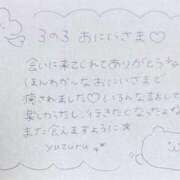 3の3 あにいさま♡
会いに来てくれてありがとう
ほんわかんなあにいさまで
癒されました♡いろんなお話しで
楽しかったし、行きたくなったよな
また会えますように
yuzuru